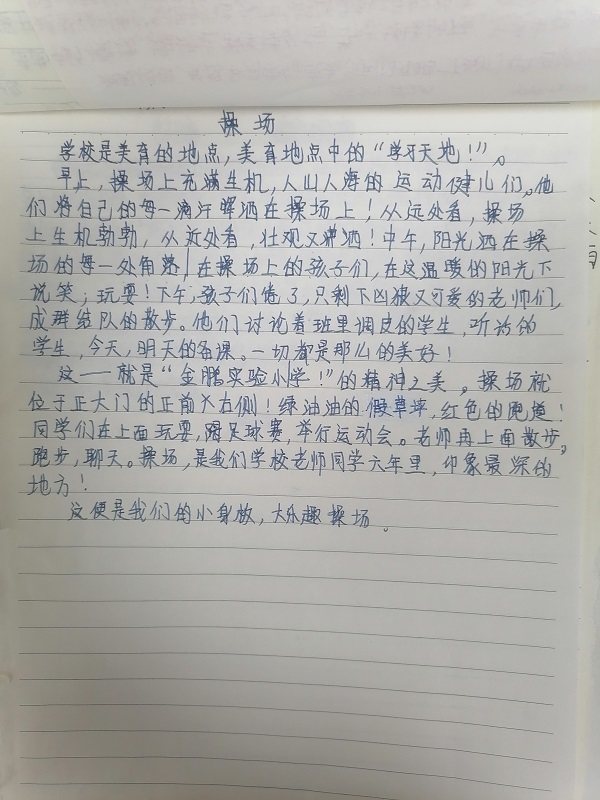 操场
学校是美育的地点，美育地点中的“学习天地！”。
早上，操场上充满生机，人山人海的运动健儿们。他
们将自己的每一滴汗挥洒在操场上！从远处看，操场
上生机勃勃，从近处看，壮观又潇洒！中午，阳光洒在操
场的每一处角落，在操场上的孩子们，在这温暖的阳光下
说笑；玩耍！下午，孩子们倦了，只剩下凶狠又可爱的老师们，
成群结队的散步。他们讨论着班里调皮的学生，听话的
学生，今天，明天的备课。一切都是那么的美好！
这——就是“金鹏实验小学！”的精神之美。操场就
位于正大门的正前右侧！绿油油的假草坪，红色的跑道！
同学们在上面玩耍，踢足球赛，举行运动会。老师再上面散步，
跑步，聊天。操场，是我们学校老师同学六年里，印象最深的
地方！
这便是我们的小身放，大乐趣操场。